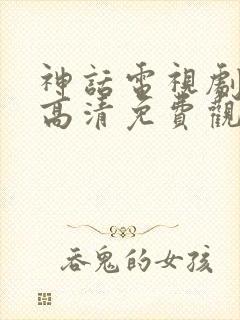 神話電視劇
高清免費觀
吞鬼的女孩